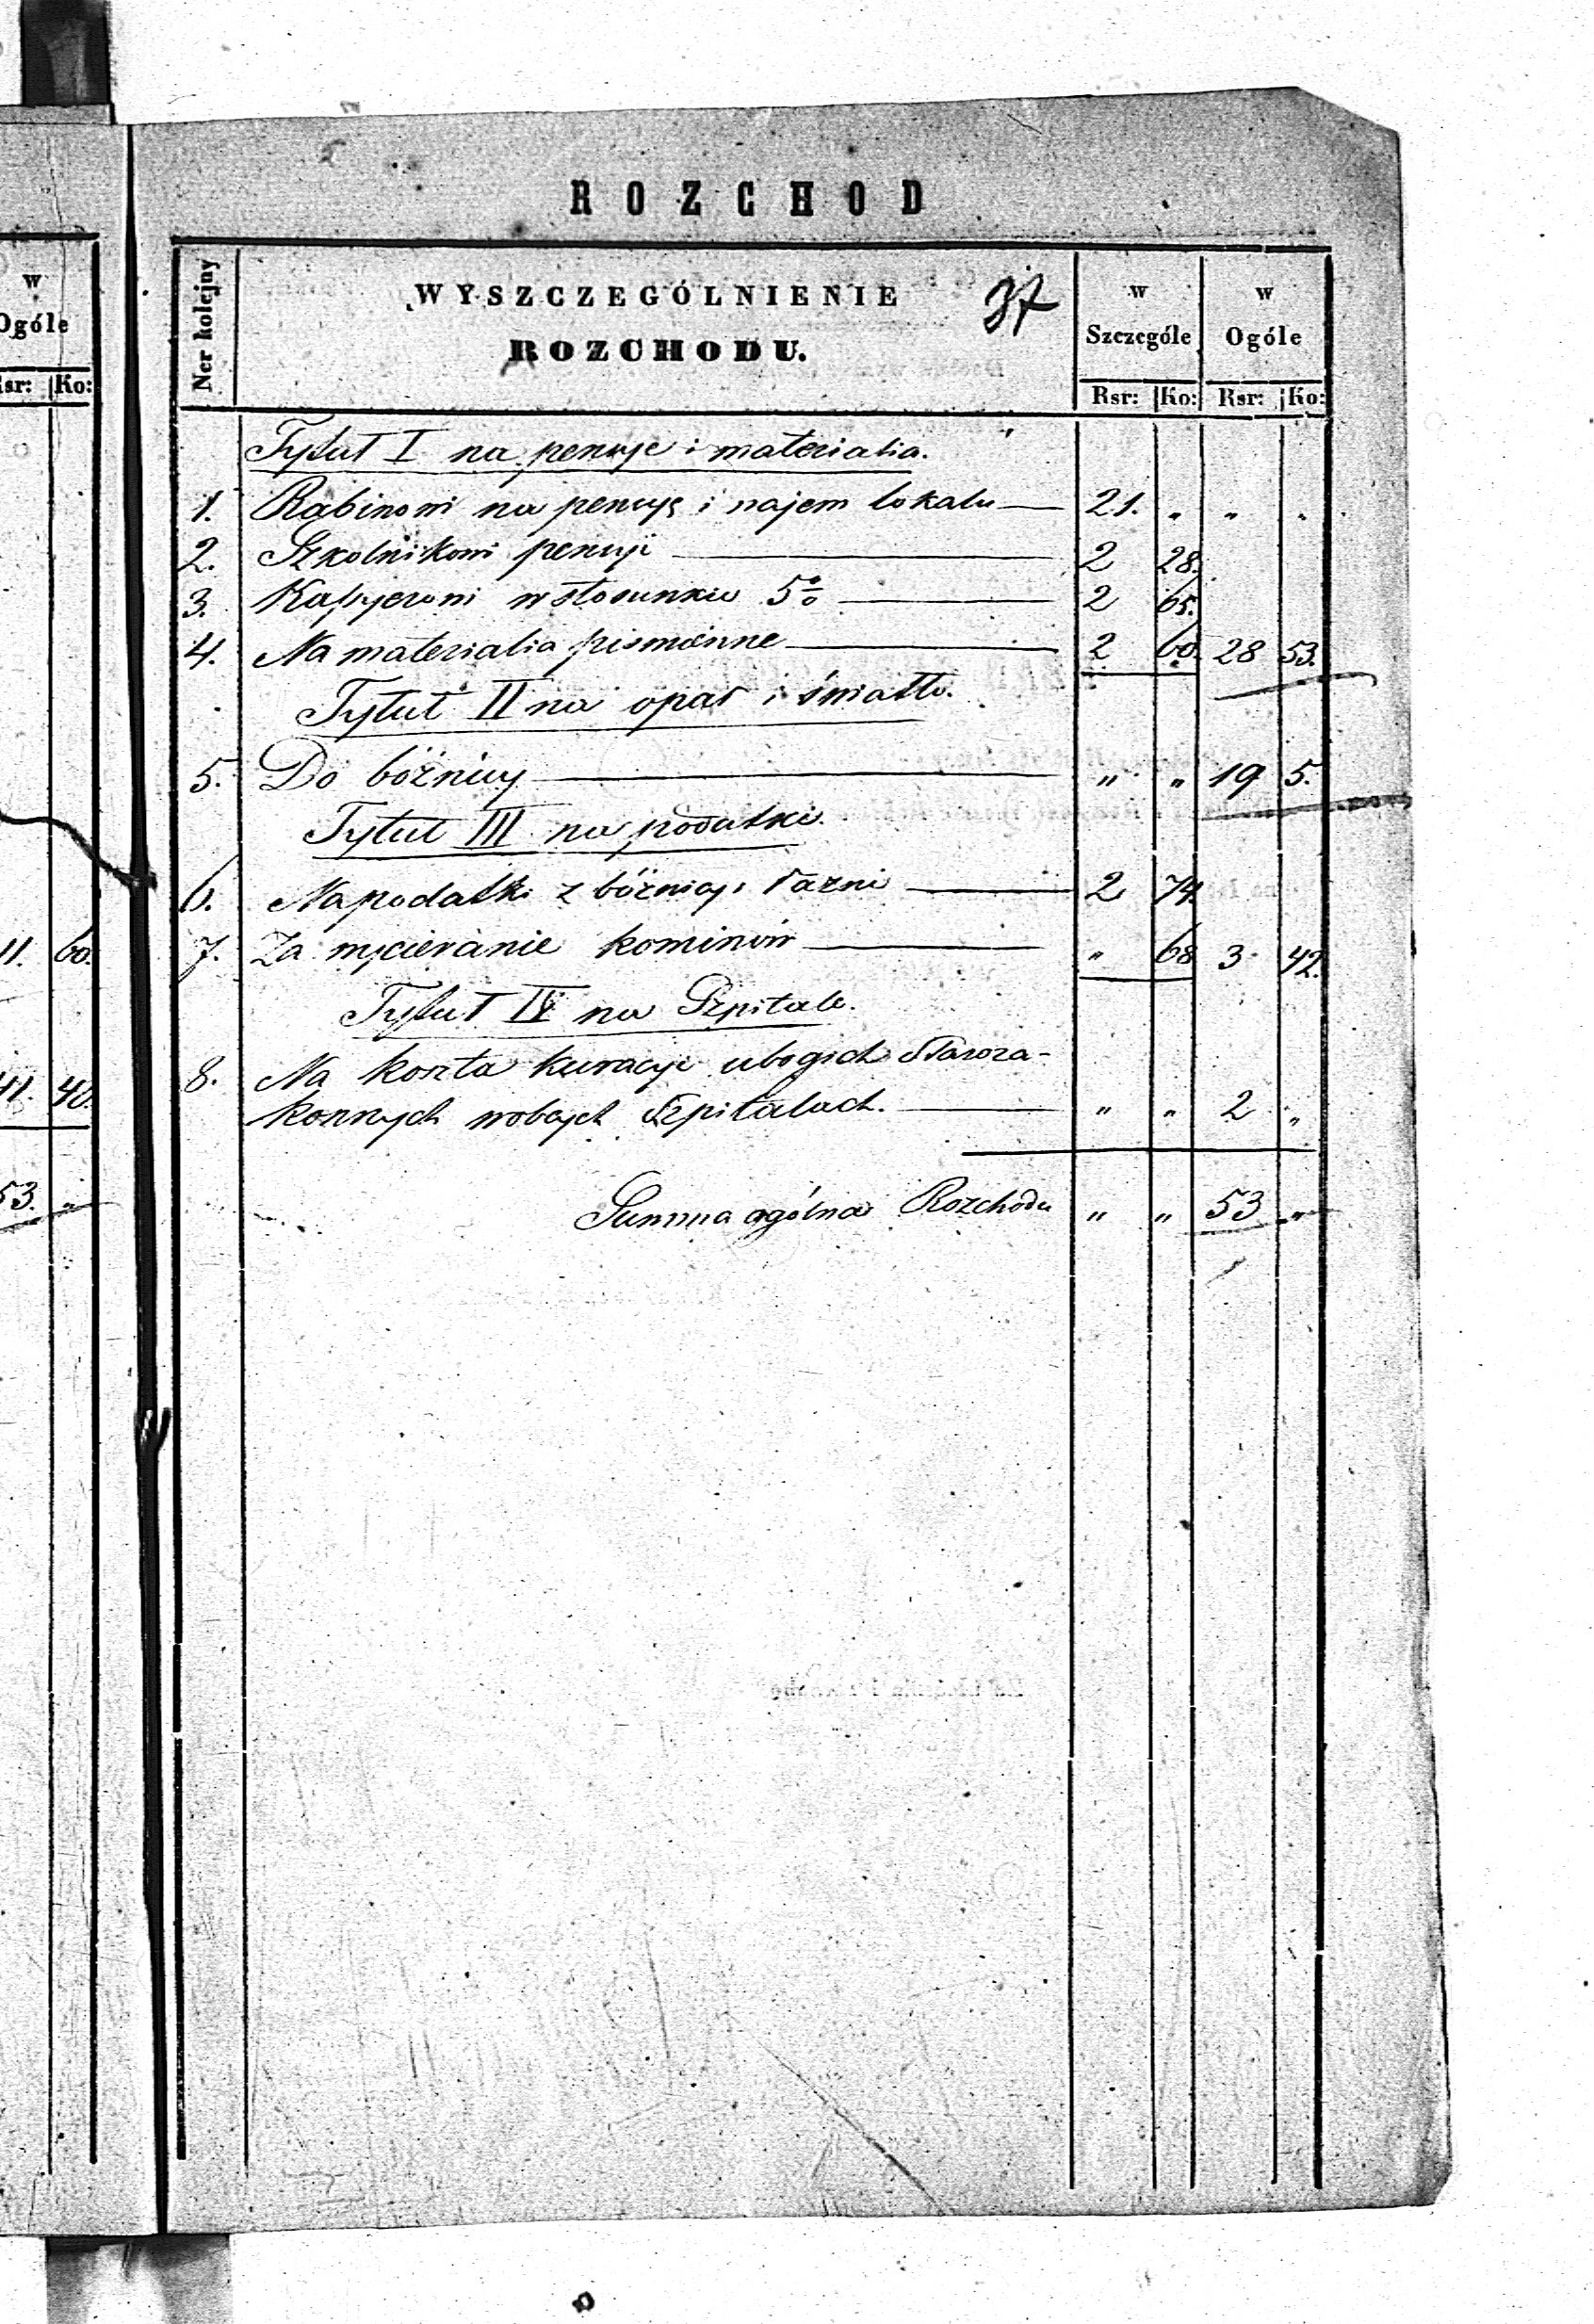 w
Ogóle
Rsr: Ko:
11. 60.
41. 40.
53. „
ROZCHOD
Ner kolejny
WYSZCZEGÓLNIENIE 37
ROZCHODU.
w Szczególe
w Ogóle
Rsr: Ko: Rsr: Ko:
Tytuł I na pensye i materialia.
1. Rabinowi na pensyę i najem lokalu — 21. „ „ „
2. Szkolnikowi pensyi — 2 28.
3. Kassyerowi w stosunku 5% — 2 65.
4. Na materialia piśmienne — 2 60. 28 53.
Tytuł II na opał i światło.
5. Do bóżnicy — „ „ 19 5.
Tytuł III na podatki.
6. Na podatki z bóżnicy i łaźni — 2 74.
7. Za wycieranie kominów — „ 68 3 42.
Tytuł IV na Szpitale.
8. Na koszta kuracyi ubogich Staroza-
konnych w obcych Szpitalach. — „ „ 2 „
Summa ogólna Rozchodu „ „ 53 „